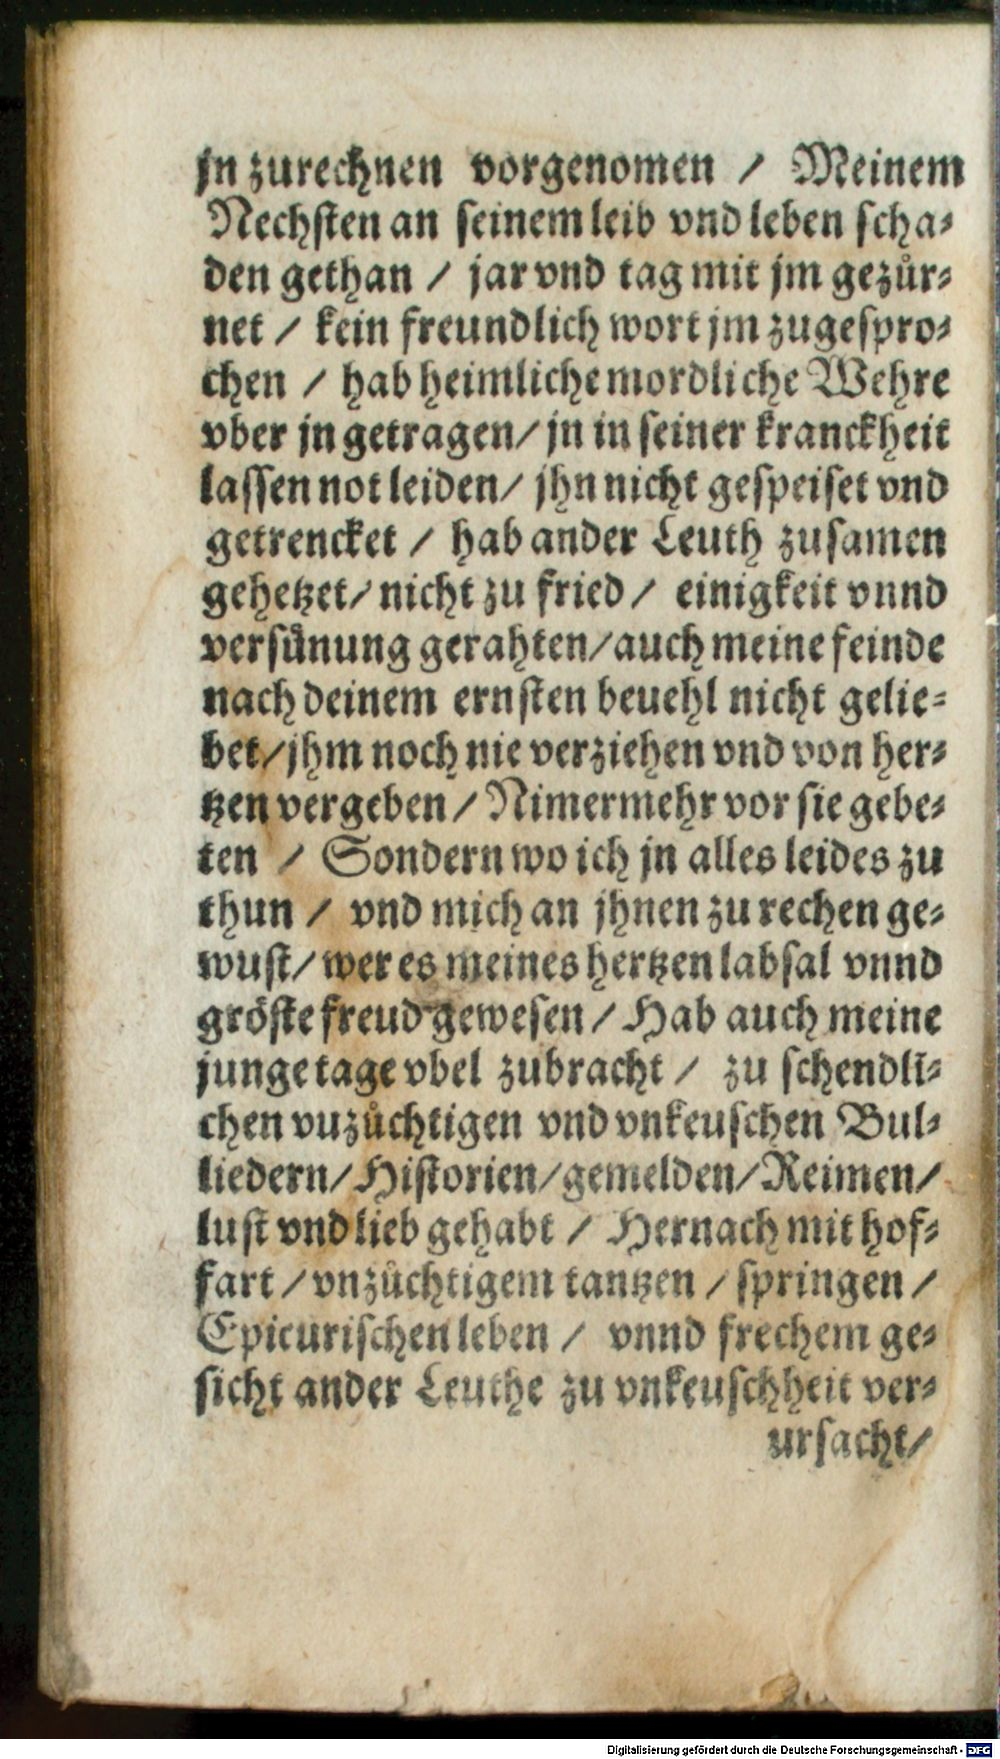 jn zurechnen vorgenomen / Meinem
Nechsten an seinem leib vnd leben scha⸗
den gethan / jar vnd tag mit jm gezuͤr⸗
net / kein freundlich wort jm zugespro⸗
chen / hab heimliche mordliche Wehre
vber jn getragen / jn in seiner kranckheit
lassen not leiden / jhn nicht gespeiset vnd
getrencket / hab ander Leuth zusamen
gehetzet / nicht zu fried / einigkeit vnnd
versuͤnung gerahten / auch meine feinde
nach deinem ernsten beuehl nicht gelie⸗
bet / jhm noch nie verziehen vnd von her⸗
tzen vergeben / Nimermehr vor sie gebe⸗
ten / Sondern wo ich jn alles leides zu
thun / vnd mich an jhnen zu rechen ge⸗
wust / wer es meines hertzen labsal vnnd
gröste freud gewesen / Hab auch meine
junge tage vbel zubracht / zu schendli⸗
chen vuzuͤchtigen vnd vnkeuschen Bul⸗
liedern / Historien / gemelden / Reimen /
lust vnd lieb gehabt / Hernach mit hof⸗
fart / vnzuͤchtigem tantzen / springen /
Epicurischen leben / vnnd frechem ge⸗
sicht ander Leuthe zu vnkeuschheit ver⸗
ursacht /
Digitalisierung gefördert durch die Deutsche Forschungsgemeinschaft - DFG